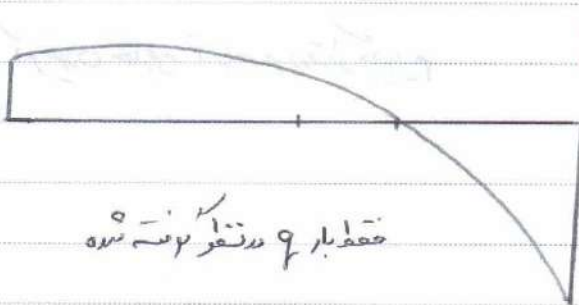 فقط بار q در نظر گرفته شده